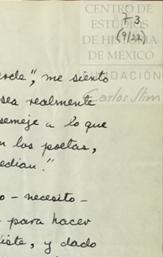 CENTRO DE
ESTUDIOS
DE HISTORIA
DE MÉXICO
FUNDACIÓN
Carlos Slim
F 3
(9/22)
", me siento
realmente
semeje a lo que
los poetas,
o - necesito -
para hacer
y dado